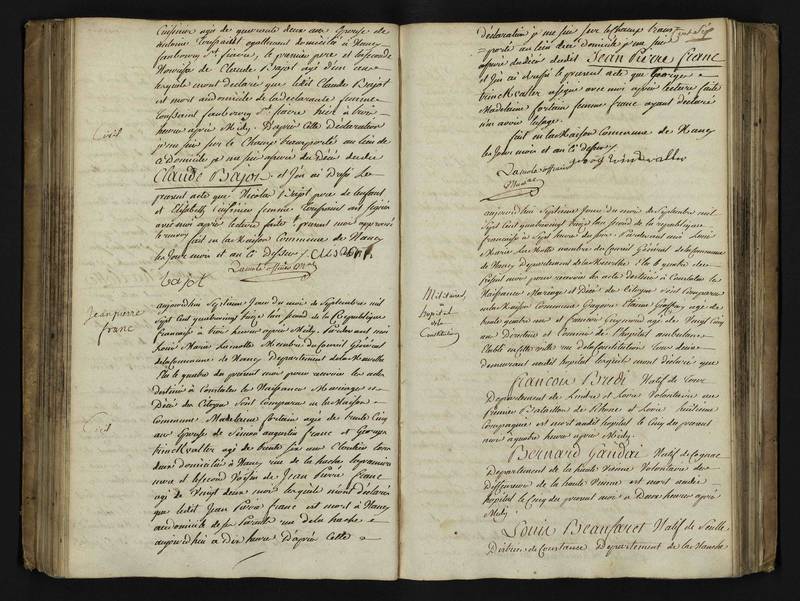 Cuisinier agé de quarante deux ans Epouse de
Antoine Toussaint domiciliés à Nancy
faubourg St. fiacre, le premier pere et la seconde
de Claude Bajot agé d'un an
lesquels m'ont declaré que ledit Claude Bajot
est mort au domicile de la declarante femme
Toussaint faubourg St. fiacre hier à trois
heures après Midy. D'après cette Déclaration
je me suis sur le Champ transporté au lieu de
ce domicile je me suis assuré du Décès dudit
Claude Bajot et j'en ai Dressé Le
présent acte que Nicolas Bajot pere de l'enfant
et Elisabeth Cuisinier femme Toussaint ont signé
avec moi après lecture faite
fait en la Maison Commune de Nancy
les Jour mois et an ci dessus
Bajot
Civil
Jean pierre
franc
aujourdhui Septieme Jour du mois de Septembre mil
Sept Cent quatrevingt treize l'an Second de la République
française à trois heures après Midy. Pardevant moi
Louis Marie Lamotte Membre du Conseil Général
de la Commune de Nancy Departement de la Meurthe
Elu le quatre du present mois pour recevoir les actes
destinés à Constater les Naissances Mariages et
Décès des Citoyens Sont Comparus en la Maison
Commune Madelaine fortain agée de trente Cinq
ans Epouse de Simon augustin franc et George
trinckvaller agé de trente six ans tous
deux domiciliés à Nancy rue de la hache la premiere
mere et le second Voisin de Jean Pierre franc
agé de Vingt deux mois lesquels m'ont déclarés
que ledit Jean Pierre franc est mort à Nancy
au domicile de ses Parents rue de la hache
aujourdhui a dix heures D'après Cette
Civil
Déclaration je me suis sur le champ trans=
=porté au lieu dudit domicile je me suis
assuré du décès dudit Jean Pierre franc
et j'en ai dressé le présent acte que George
trinckvaller a signé avec moi après lecture faite
Madelaine fortain femme franc ayant déclaré
n'en avoir l'usage.
fait en la Maison Commune de Nancy
les Jour mois et an ci dessus
aujourdhui Septieme Jour du mois de Septembre mil
Sept Cent quatrevingt treize l'an second de la république
française à Sept heures du soir Pardevant moi Louis
Marie Lamotte membre du Conseil Général de la Commune
de Nancy Departement de la Meurthe Elu le quatre du
présent mois pour recevoir les actes destinés à Constater les
Naissances Mariages et Décès des Citoyens sont Comparus
en la Maison Commune Etienne Geoffroy agé de
trente quatre ans et agé de Vingt Cinq
ans Directeur et Commis de l'hopital ambulant
Etabli en cette ville rue de la Constitution tous deux
demeurant audit hopital lesquels m'ont déclaré que
Militaires
hopital
de la
Constitution
françois Bredi Natif de Tours
Departement de l'Indre et Loire Volontaire au
premier Bataillon de Rhone et Loire huitieme
Compagnie est mort audit hopital le Cinq du present
mois a quatre heures apres Midy.
Bernard Gandoi Natif de Cognac
Departement de la haute Vienne Volontaire des
de la haute Vienne est mort audit
hopital le Cinq du present mois a Deux heures après
Midy
Louis Beaufaret Natif de
District de Coutance Departement de la Manche